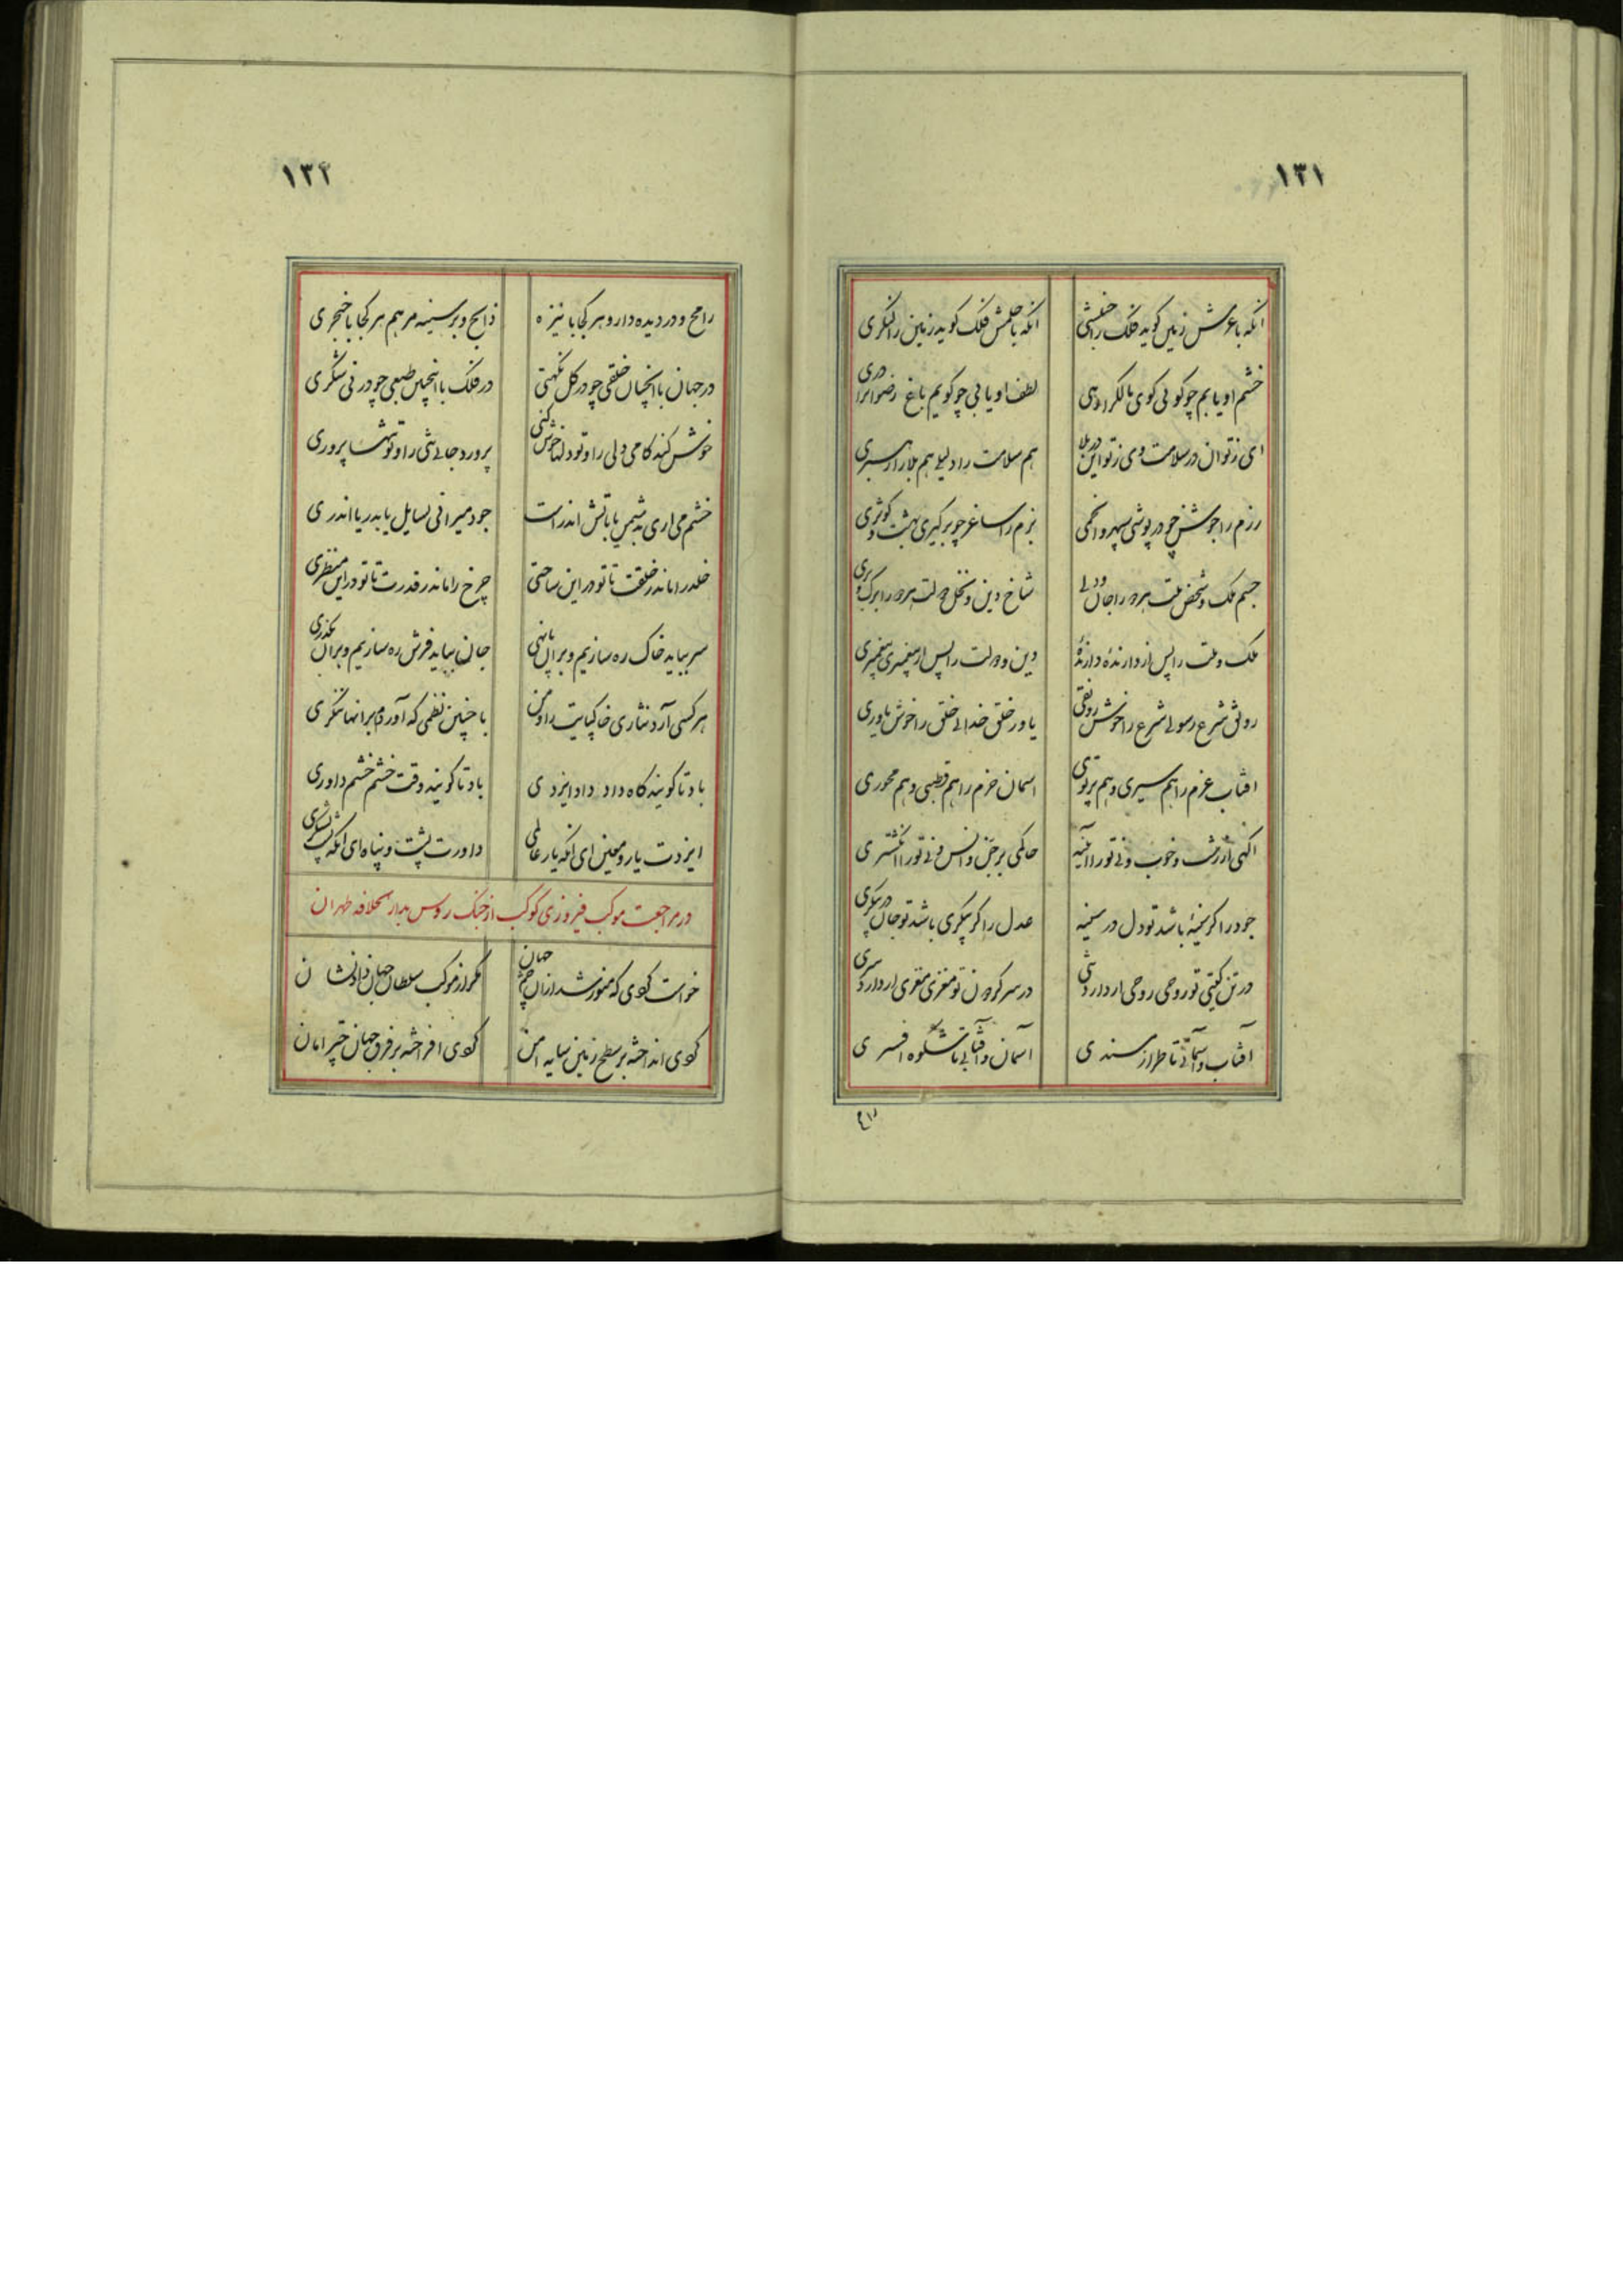 ۱۳۱
انکه با عزمش زمین کوید فلک را جنبشی انکه با حلمش فلک کوید زمین را لنکری
خشم او یابم چو کوئی کوی مالک را دهی لطف او یابی چو کویم باغ رضوانرا دری
ای ز تو ان در سلامت وی ز تو این در بلا هم سلامت را دلیلی هم بلا را رهبری
رزم را جوشن چو در پوشی سپهر و انجمی بزم را ساغر چو برکیری بهشت و کوثری
جسم ملک و شخص ملت هر دو را جان و دلی شاخ دین و نخل دولت هر دو را برک و بری
ملک و ملت را پس از دارندهٔ دارندهٔ دین و دولت را پس از پیغمبری پیغمبری
رونق شرع رسولی شرع را خوش رونقی یاور خلق خدائی خلق را خوش یاوری
افتاب عزم را هم سیری و هم پرتوی اسمان حزم را هم قطبی و هم محوری
اکهی از زشت و خوب و نی تو را آئینه حاکمی بر جن و انس و نی تو را انکشتری
جود را کر سینهٔ باشد تو دل در سینه عدل را کر پیکری باشد تو جان در پیکری
در تن کیتی تو روحی روحی ار دارد تنی در سر کردون تو مغزی مغزی ار دارد سری
آفتاب و آسمانی تا طراز مسندی آسمان و آفتابی تا شکوه افسری
۱۳۲
رامح و در دیده دارد هر کجا با نیزه ذابح و بر سینه مرهم هر کجا با خنجری
در جهان با انچنان خلقی چو در کل نکهتی در فلک با اینچنین طبعی چو در نی شکری
خوش کند کامی دلی را و تو دلها خوش کنی پرورد جانی تنی را و تو تنها پروری
خشم می اری به شمس یا باتش اندر است جود میرانی بسایل یا بدریا اندری
خلد را ماند ز خلقت تا تو در این ساحتی چرخ را ماند ز قدرت تا تو در این منظری
سر بباید خاک ره سازیم و بر ان پا نهی جان بباید فرش ره سازیم و بران بکذری
هر کسی آرد نثاری خاکپایت را و من با چنین نظمی که آوردم بر انها ننکری
باد تا کویند کاه داد داد ایزدی باد تا کویند وقت خشم خشم داوری
ایزدت یار و معین ای انکه یار عالمی داورت پشت و پناه ای انکه پشت لشکری
در مراجعت موکب فیروزی کوکب از جنک روس بدار الخلافه طهران
خواست کردی که منور شد از ان چشم جهان مکر از موکب سلطان جهان داد نشان
کردی انداخته بر سطح زمین سایه امن کردی افراخته بر فرق جهان چتر امان